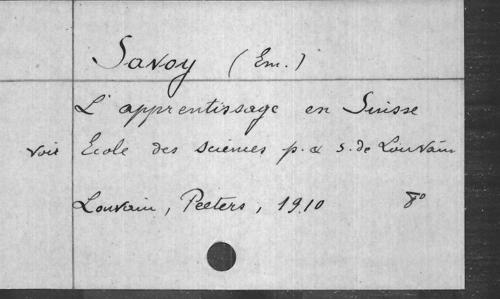 Savoy (Em.)
L'apprentissage en Suisse
voir Ecole des sciences p. & s. de Louvain
Louvain, Peeters, 1910 8°